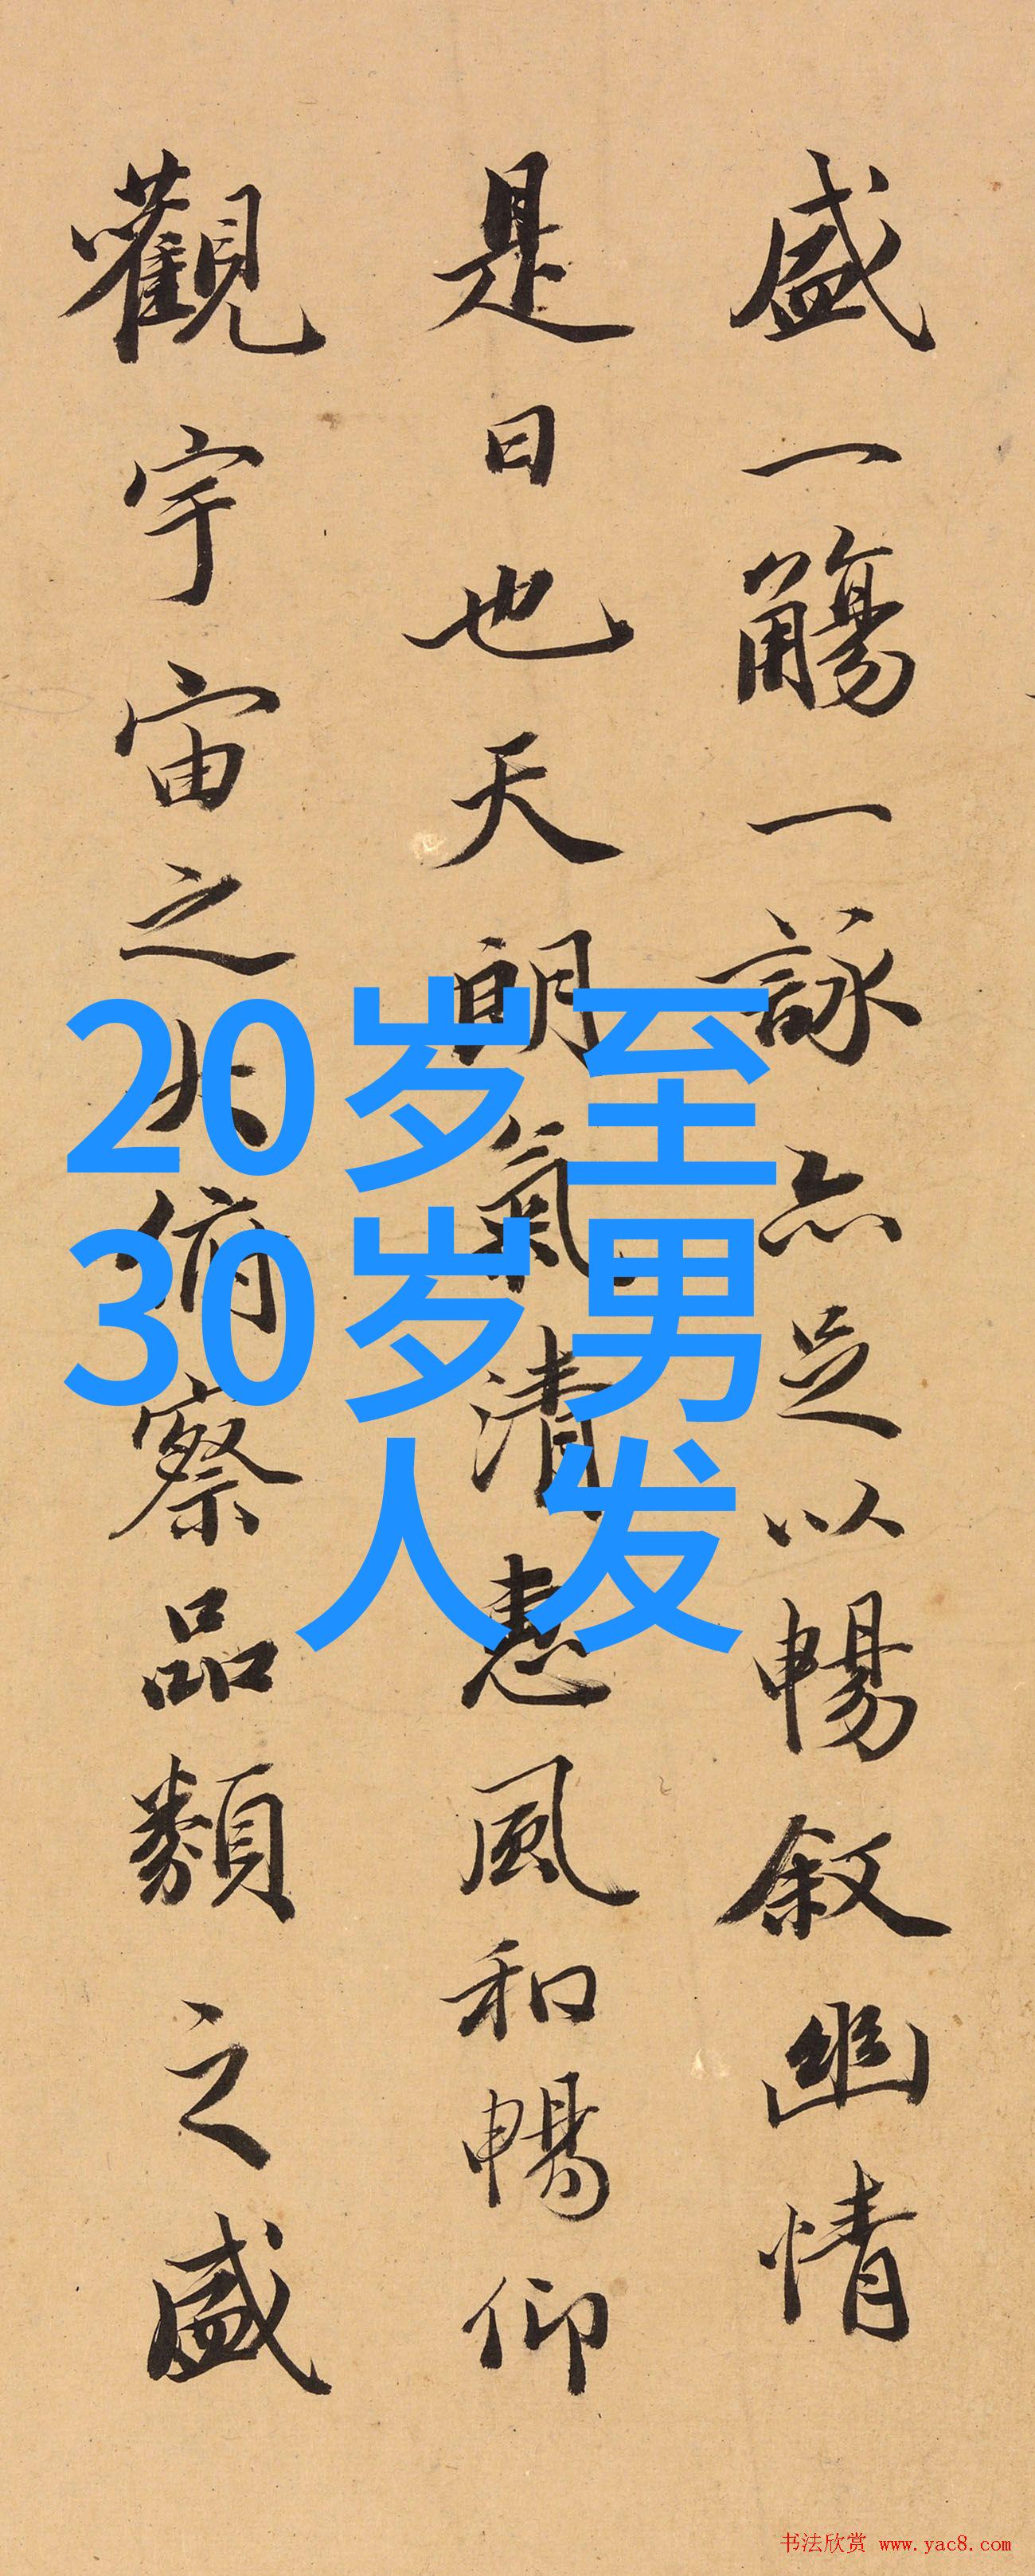 盛一觴一詠亦足以暢叙幽情
是日也天朗氣清惠風和暢仰
觀宇宙之大俯察品類之盛
20岁至
30岁男
人发
书法欣赏 www.yac8.com